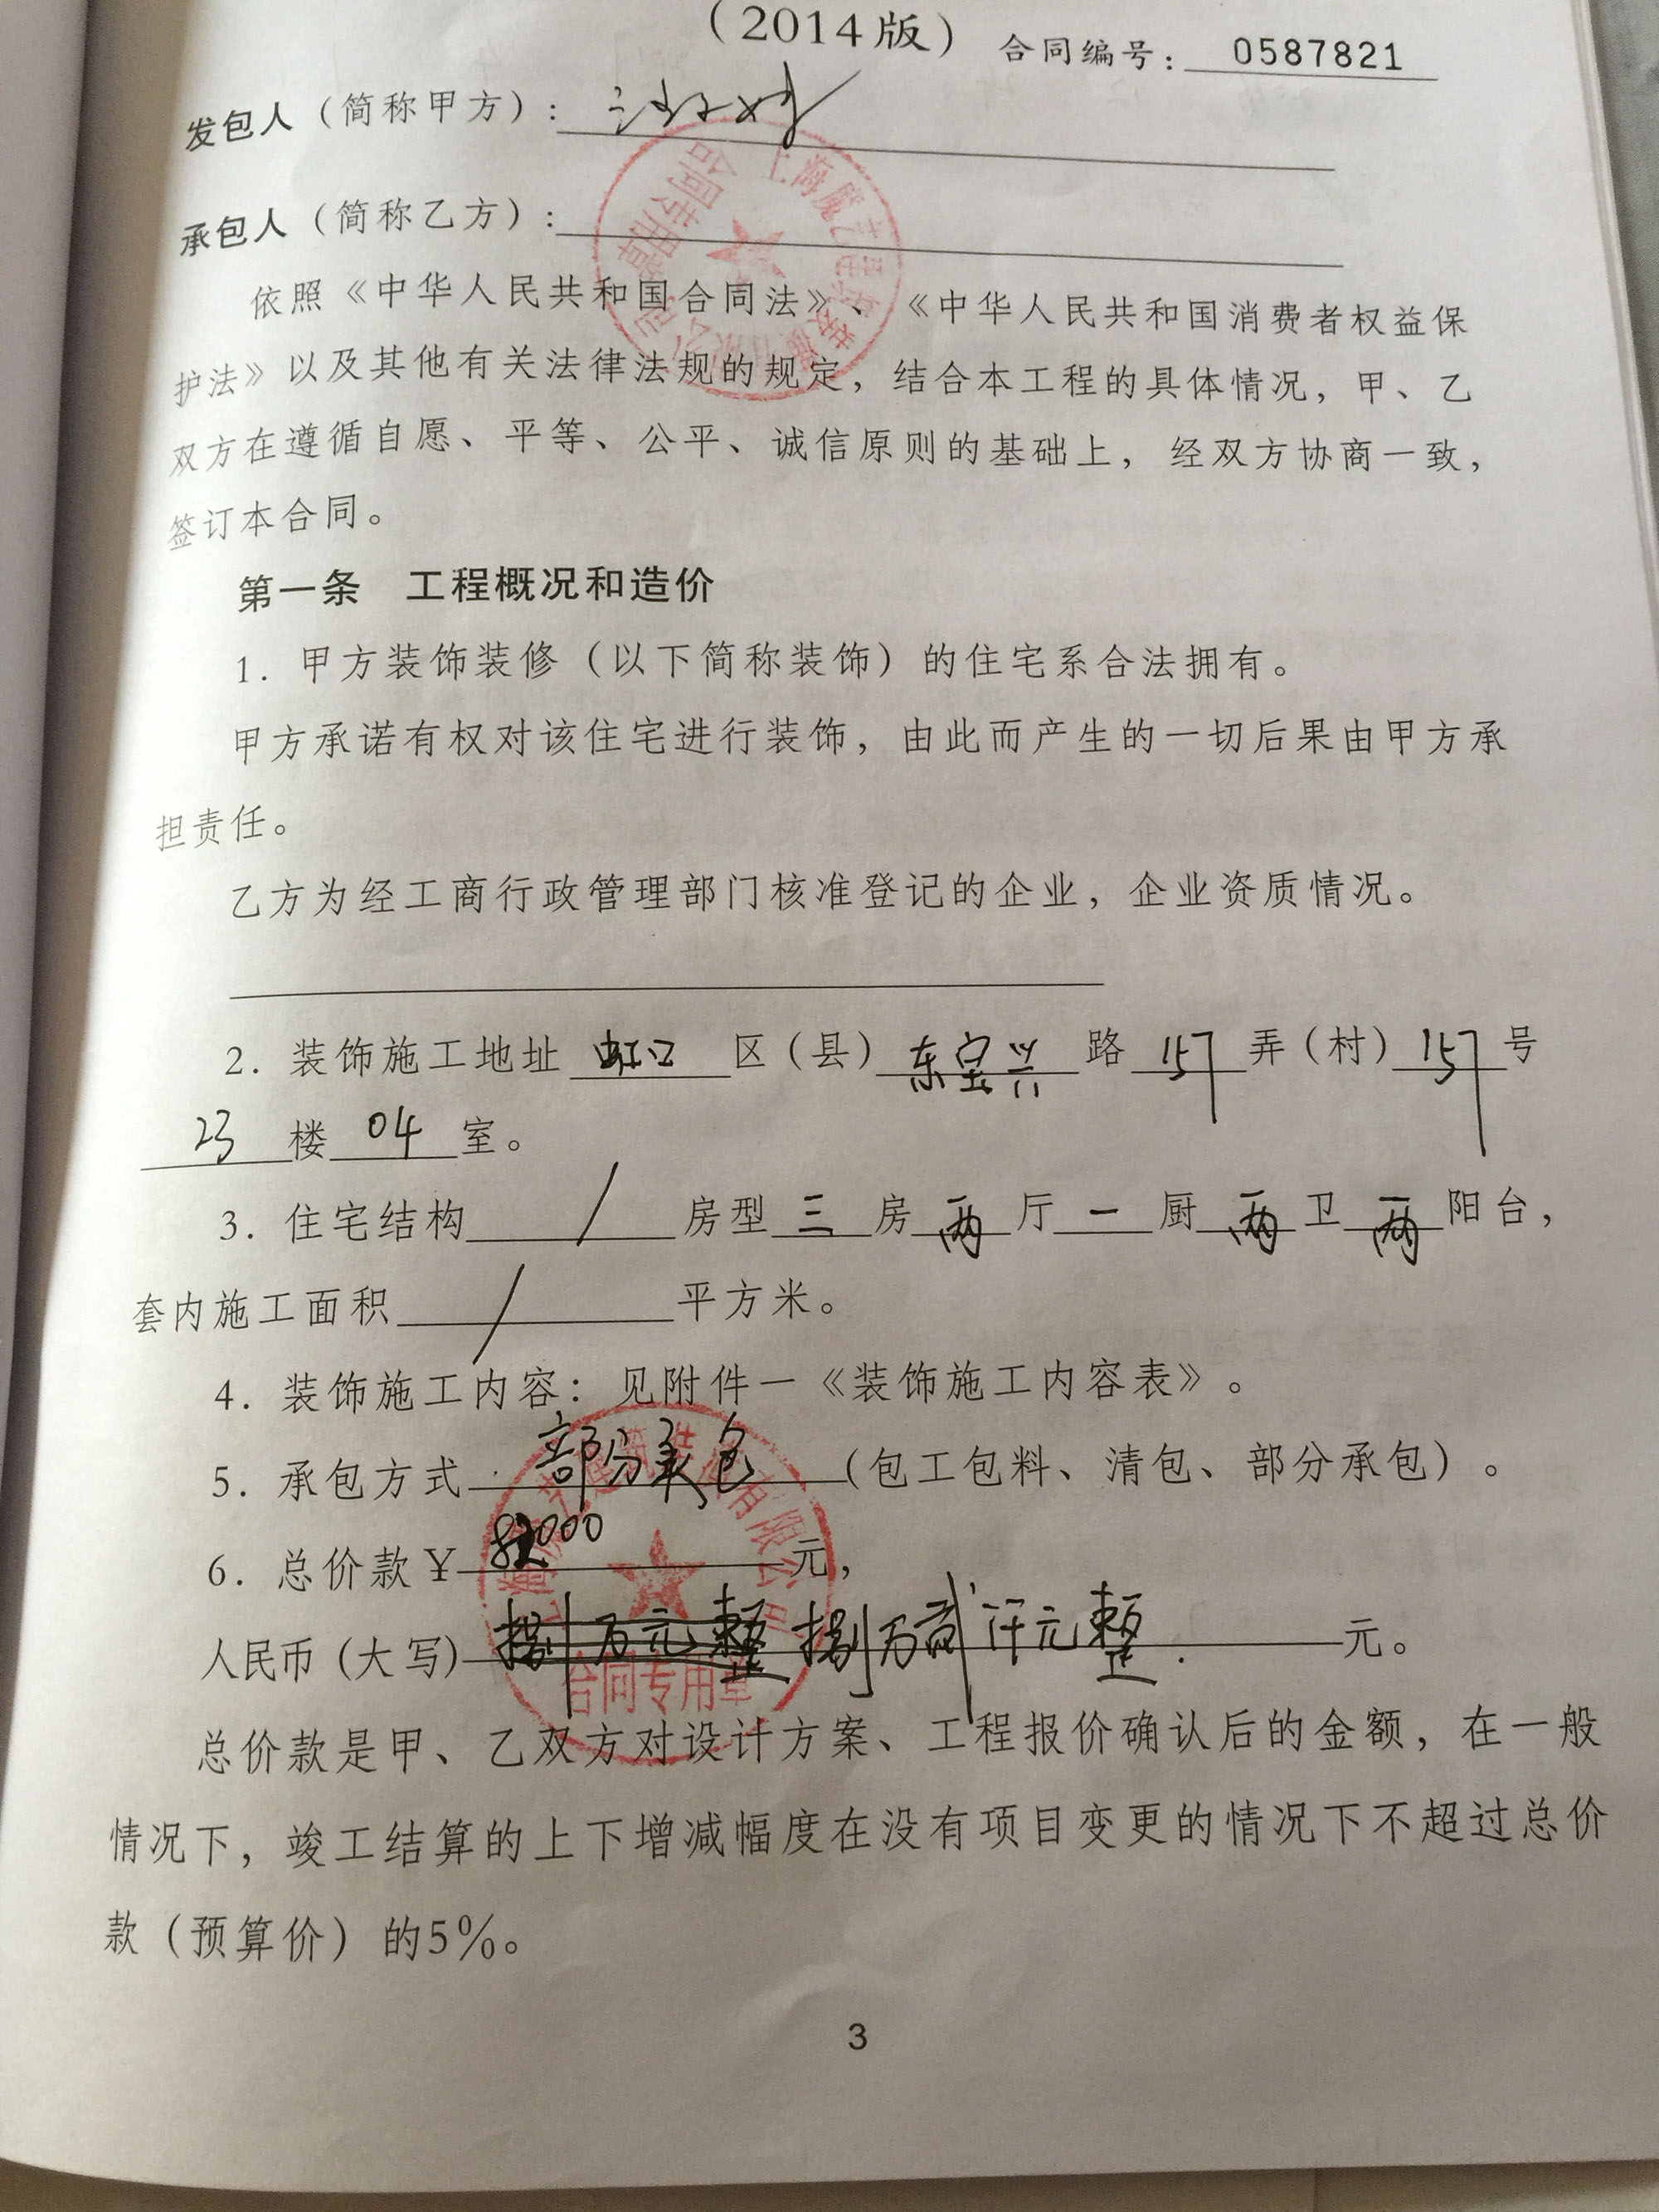 （2014版） 合同编号：0587821
发包人（简称甲方）：
承包人（简称乙方）：
依照《中华人民共和国合同法》、《中华人民共和国消费者权益保
护法》以及其他有关法律法规的规定，结合本工程的具体情况，甲、乙
双方在遵循自愿、平等、公平、诚信原则的基础上，经双方协商一致，
签订本合同。
第一条 工程概况和造价
1. 甲方装饰装修（以下简称装饰）的住宅系合法拥有。
甲方承诺有权对该住宅进行装饰，由此而产生的一切后果由甲方承
担责任。
乙方为经工商行政管理部门核准登记的企业，企业资质情况。
2. 装饰施工地址 虹口 区（县）东宝兴 路 157 弄（村）157 号
23 楼 04 室。
3. 住宅结构 / 房型 三 房 两 厅 一 厨 两 卫 两 阳台，
套内施工面积 / 平方米。
4. 装饰施工内容：见附件一《装饰施工内容表》。
5. 承包方式 部分承包（包工包料、清包、部分承包）。
6. 总价款￥82000元，
人民币（大写）捌万元整 捌万贰仟元整. 元。
合同专用章
总价款是甲、乙双方对设计方案、工程报价确认后的金额，在一般
情况下，竣工结算的上下增减幅度在没有项目变更的情况下不超过总价
款（预算价）的5%。
3